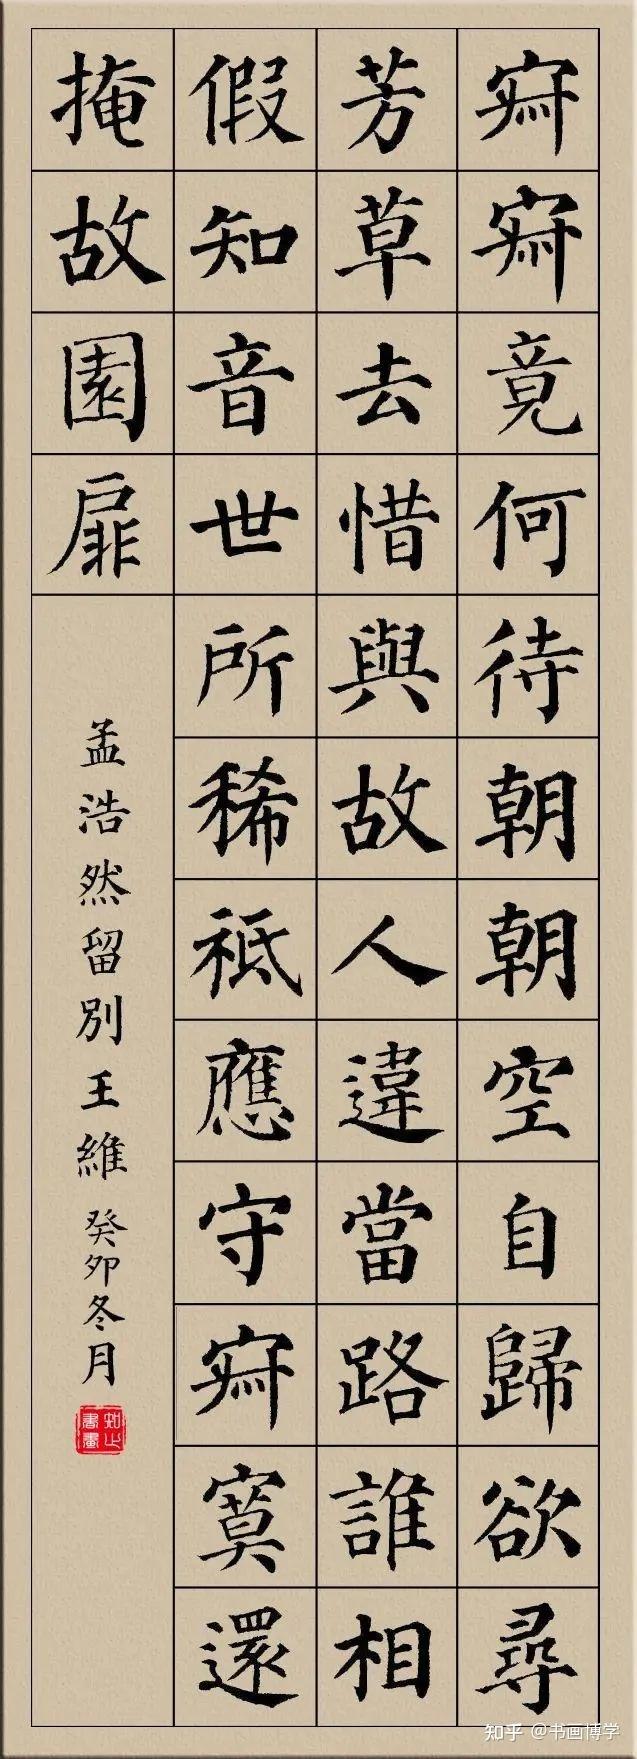 寂寂竟何待朝朝空自歸欲尋
芳草去惜與故人違當路誰相
假知音世所稀祗應守寂寞還
掩故園扉
孟浩然留別王維 癸卯冬月
知止書畫
知乎 @书画博学